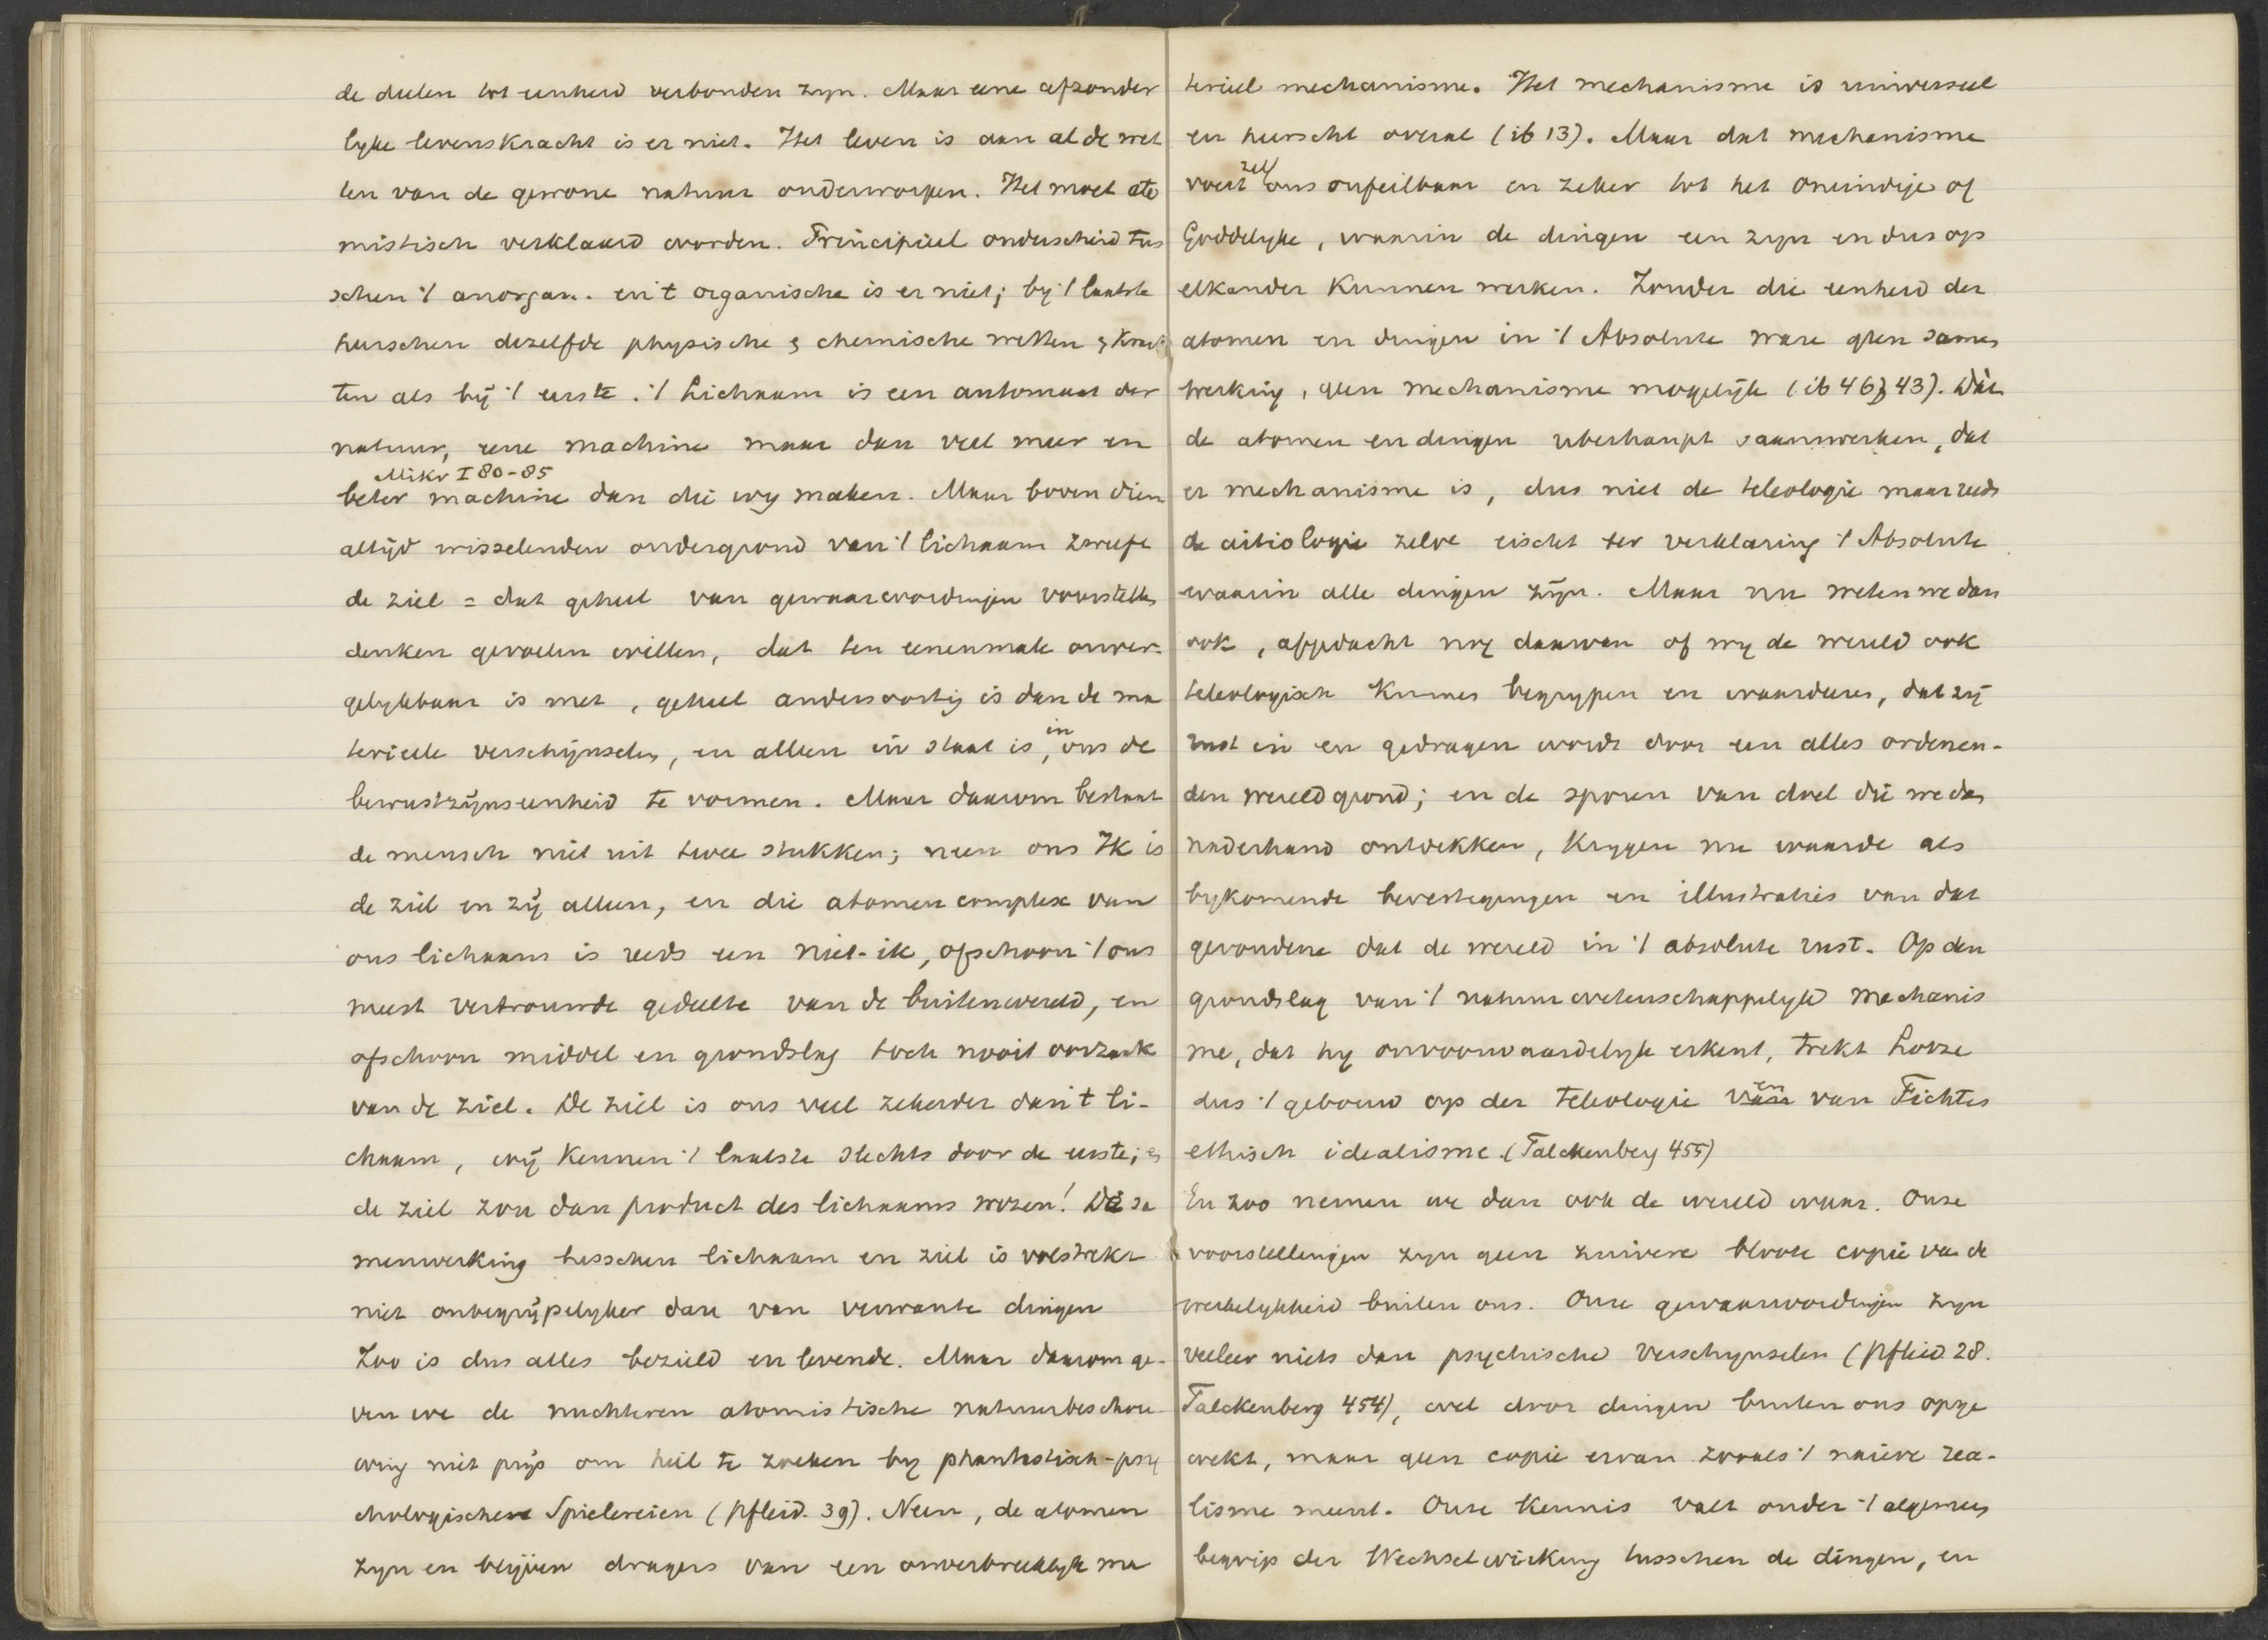 de deelen tot eenheid verbonden zyn. Maar eene afzonder
lyke levenskracht is er niet. Het leven is aan al de wet
ten van de gewone natuur onderworpen. Het moet ato
mistisch verklaard worden. Principieel onderscheid tus
schen 't anorgan. en 't organische is er niet; by 't laatste
heerschen dezelfde physische & chemische wetten & krach
ten als bij 't eerste. 't Lichaam is een automaat der
natuur, eene machine maar dan veel meer en
Mikr I 80-85
beter machine dan die wy maken. Maar boven dien
altijd wisselenden ondergrond van 't lichaam zweeft
de ziel = dat geheel van gewaarwordingen voorstellen
denken gevoelen willen, dat ten eenenmale onver-
gelykbaar is met, geheel andersoortig is dan de ma
terieele verschijnselen, en alleen in staat is, in ons de
bewustzijnseenheid te vormen. Maar daarom bestaat
de mensch niet uit twee stukken; neen ons Ik is
de ziel en zij alleen, en die atomencomplex van
ons lichaam is reeds een niet-ik, ofschoon 't ons
meest vertrouwde gedeelte van de buitenwereld, en
ofschoon middel en grondslag toch nooit oorzaak
van de ziel. De ziel is ons veel zekerder dan 't li-
chaam, wij kennen 't laatste slechts door de eerste; &
de ziel zou dan product des lichaams wezen! De sa
menwerking tusschen lichaam en ziel is volstrekt
niet onbegrijpelyker dan van verwante dingen
Zoo is dus alles bezield en levende. Maar daarom ge-
ven we de nuchteren atomistische natuurbeschou
wing niet prijs om heil te zoeken by phantastisch-psy
chologischen Spielereien (Pfleid. 39). Neen, de atomen
zyn en blijven dragers van een onverbreeklyk ma
terieel mechanisme. Het mechanisme is universeel
en heerscht overal (ib 13). Maar dat mechanisme
zelf
voert ons onfeilbaar en zeker tot het oneindige of
Goddelyke, waarin de dingen een zyn en dus op
elkander kunnen werken. Zonder die eenheid der
atomen en dingen in 't Absolute ware geen samen
werking, geen mechanisme mogelijk (ib 46, 43). Dat
de atomen en dingen uberhaupt saamwerken, dat
er mechanisme is, dus niet de teleologie maar reeds
de aitiologie zelve eischt ter verklaring 't Absolute
waarin alle dingen zijn. Maar nu weten we dan
ook, afgedacht nog daarvan of wy de wereld ook
teleologisch kunnen begrypen en waardeeren, dat zij
rust in en gedragen wordt door een alles ordenen-
den wereldgrond; en de sporen van doel die we dan
naderhand ontdekken, krygen nu waarde als
bykomende bevestigingen en illustraties van dat
gevondene dat de wereld in 't absolute rust. Op den
grondslag van 't natuurwetenschappelyk mechanis
me, dat hy onvoorwaardelyk erkent, trekt Lotze
dus 't gebouw op der teleologie en van Fichtes
ethisch idealisme. (Falckenberg 455)
En zoo nemen we dan ook de wereld waar. Onze
voorstellingen zyn geen zuivere bloote copie van de
werkelykheid buiten ons. Onze gewaarwordingen zyn
veeleer niets dan psychische verschynselen (Pfleid 28.
Falckenberg 454), wel door dingen buiten ons opge
wekt, maar geen copie ervan zooals 't naieve rea-
lisme meent. Onze kennis valt onder 't algemeen
begrip der Wechselwirkung tusschen de dingen, en